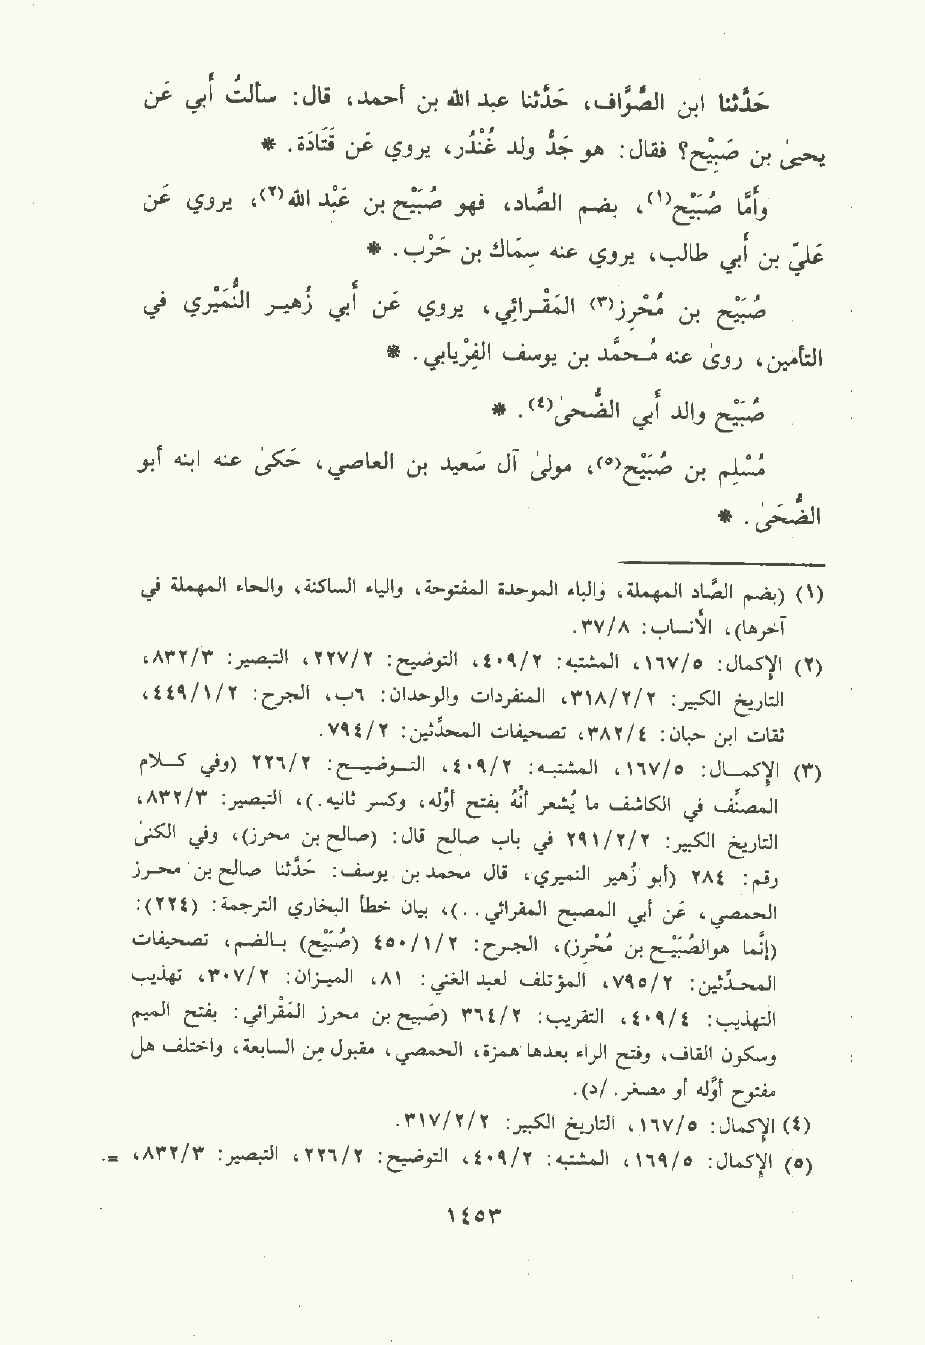 حَدَّثنا ابن الصَّوَّاف، حَدَّثنا عبد الله بن أحمد، قال: سألتُ أَبي عَن
يحيىٰ بن صَبِيْح؟ فقال: هو جَدُّ ولد غُنْدَر، يروي عَن قَتَادَة. *
وأمّا صُبَيْح(١)، بضم الصَّاد، فهو صُبَيْح بن عَبْد الله(٢)، يروي عَن
عَليّ بن أَبي طالب، يروي عنه سِمَاك بن حَرْب. *
صُبَيْح بن مُحْرِز(٣) المَقْرائِي، يروي عَن أَبي زُهير النُّمَيْري في
التأمين، روىٰ عنه مُحمَّد بن يوسف الفِرْيابي. *
صُبَيْح والد أَبي الضُّحىٰ(٤). *
مُسْلِم بن صُبَيْح(٥)، مولىٰ آل سَعيد بن العاصي، حَكىٰ عنه ابنه أبو
الضُّحَىٰ. *
(١) (بضم الصَّاد المهملة، والباء الموحدة المفتوحة، والياء الساكنة، والحاء المهملة في
آخرها)، الأنساب: ٣٧/٨.
(٢) الإكمال: ١٦٧/٥، المشتبه: ٤٠٩/٢، التوضيح: ٢٢٧/٢، التبصير: ٨٣٢/٣،
التاريخ الكبير: ٣١٨/٢/٢، المنفردات والوحدان: ٦ب، الجرح: ٤٤٩/١/٢،
ثقات ابن حبان: ٣٨٢/٤، تصحيفات المحدّثين: ٧٩٤/٢.
(٣) الإكمال: ١٦٧/٥، المشتبه: ٤٠٩/٢، التوضيح: ٢٢٦/٢ (وفي كلام
المصنّف في الكاشف ما يُشعر أنّه بفتح أوّله، وكسر ثانيه.)، التبصير: ٨٣٢/٣،
التاريخ الكبير: ٢٩١/٢/٢ في باب صالح قال: (صالح بن محرز)، وفي الكنىٰ
رقم: ٢٨٤ (أبو زُهير النميري، قال محمد بن يوسف: حَدَّثنا صالح بن محرز
الحمصي، عَن أبي المصبح المقرائي..)، بيان خطأ البخاري الترجمة: (٢٢٤):
(إنّما هوالصُّبَيْح بن مُحْرِز)، الجرح: ٤٥٠/١/٢ (صُبَيْح) بالضم، تصحيفات
المحدّثين: ٧٩٥/٢، المؤتلف لعبد الغني: ٨١، الميزان: ٣٠٧/٢، تهذيب
التهذيب: ٤٠٩/٤، التقريب: ٣٦٤/٢ (صَبيح بن محرز المَقْرائي: بفتح الميم
وسكون القاف، وفتح الراء بعدها همزة، الحمصي، مقبول مِن السابعة، واختلف هل
مفتوح أوّله أو مصغر. /د).
(٤) الإكمال: ١٦٧/٥، التاريخ الكبير: ٣١٧/٢/٢.
(٥) الإكمال: ١٦٩/٥، المشتبه: ٤٠٩/٢، التوضيح: ٢٢٦/٢، التبصير: ٨٣٢/٣، =.
١٤٥٣